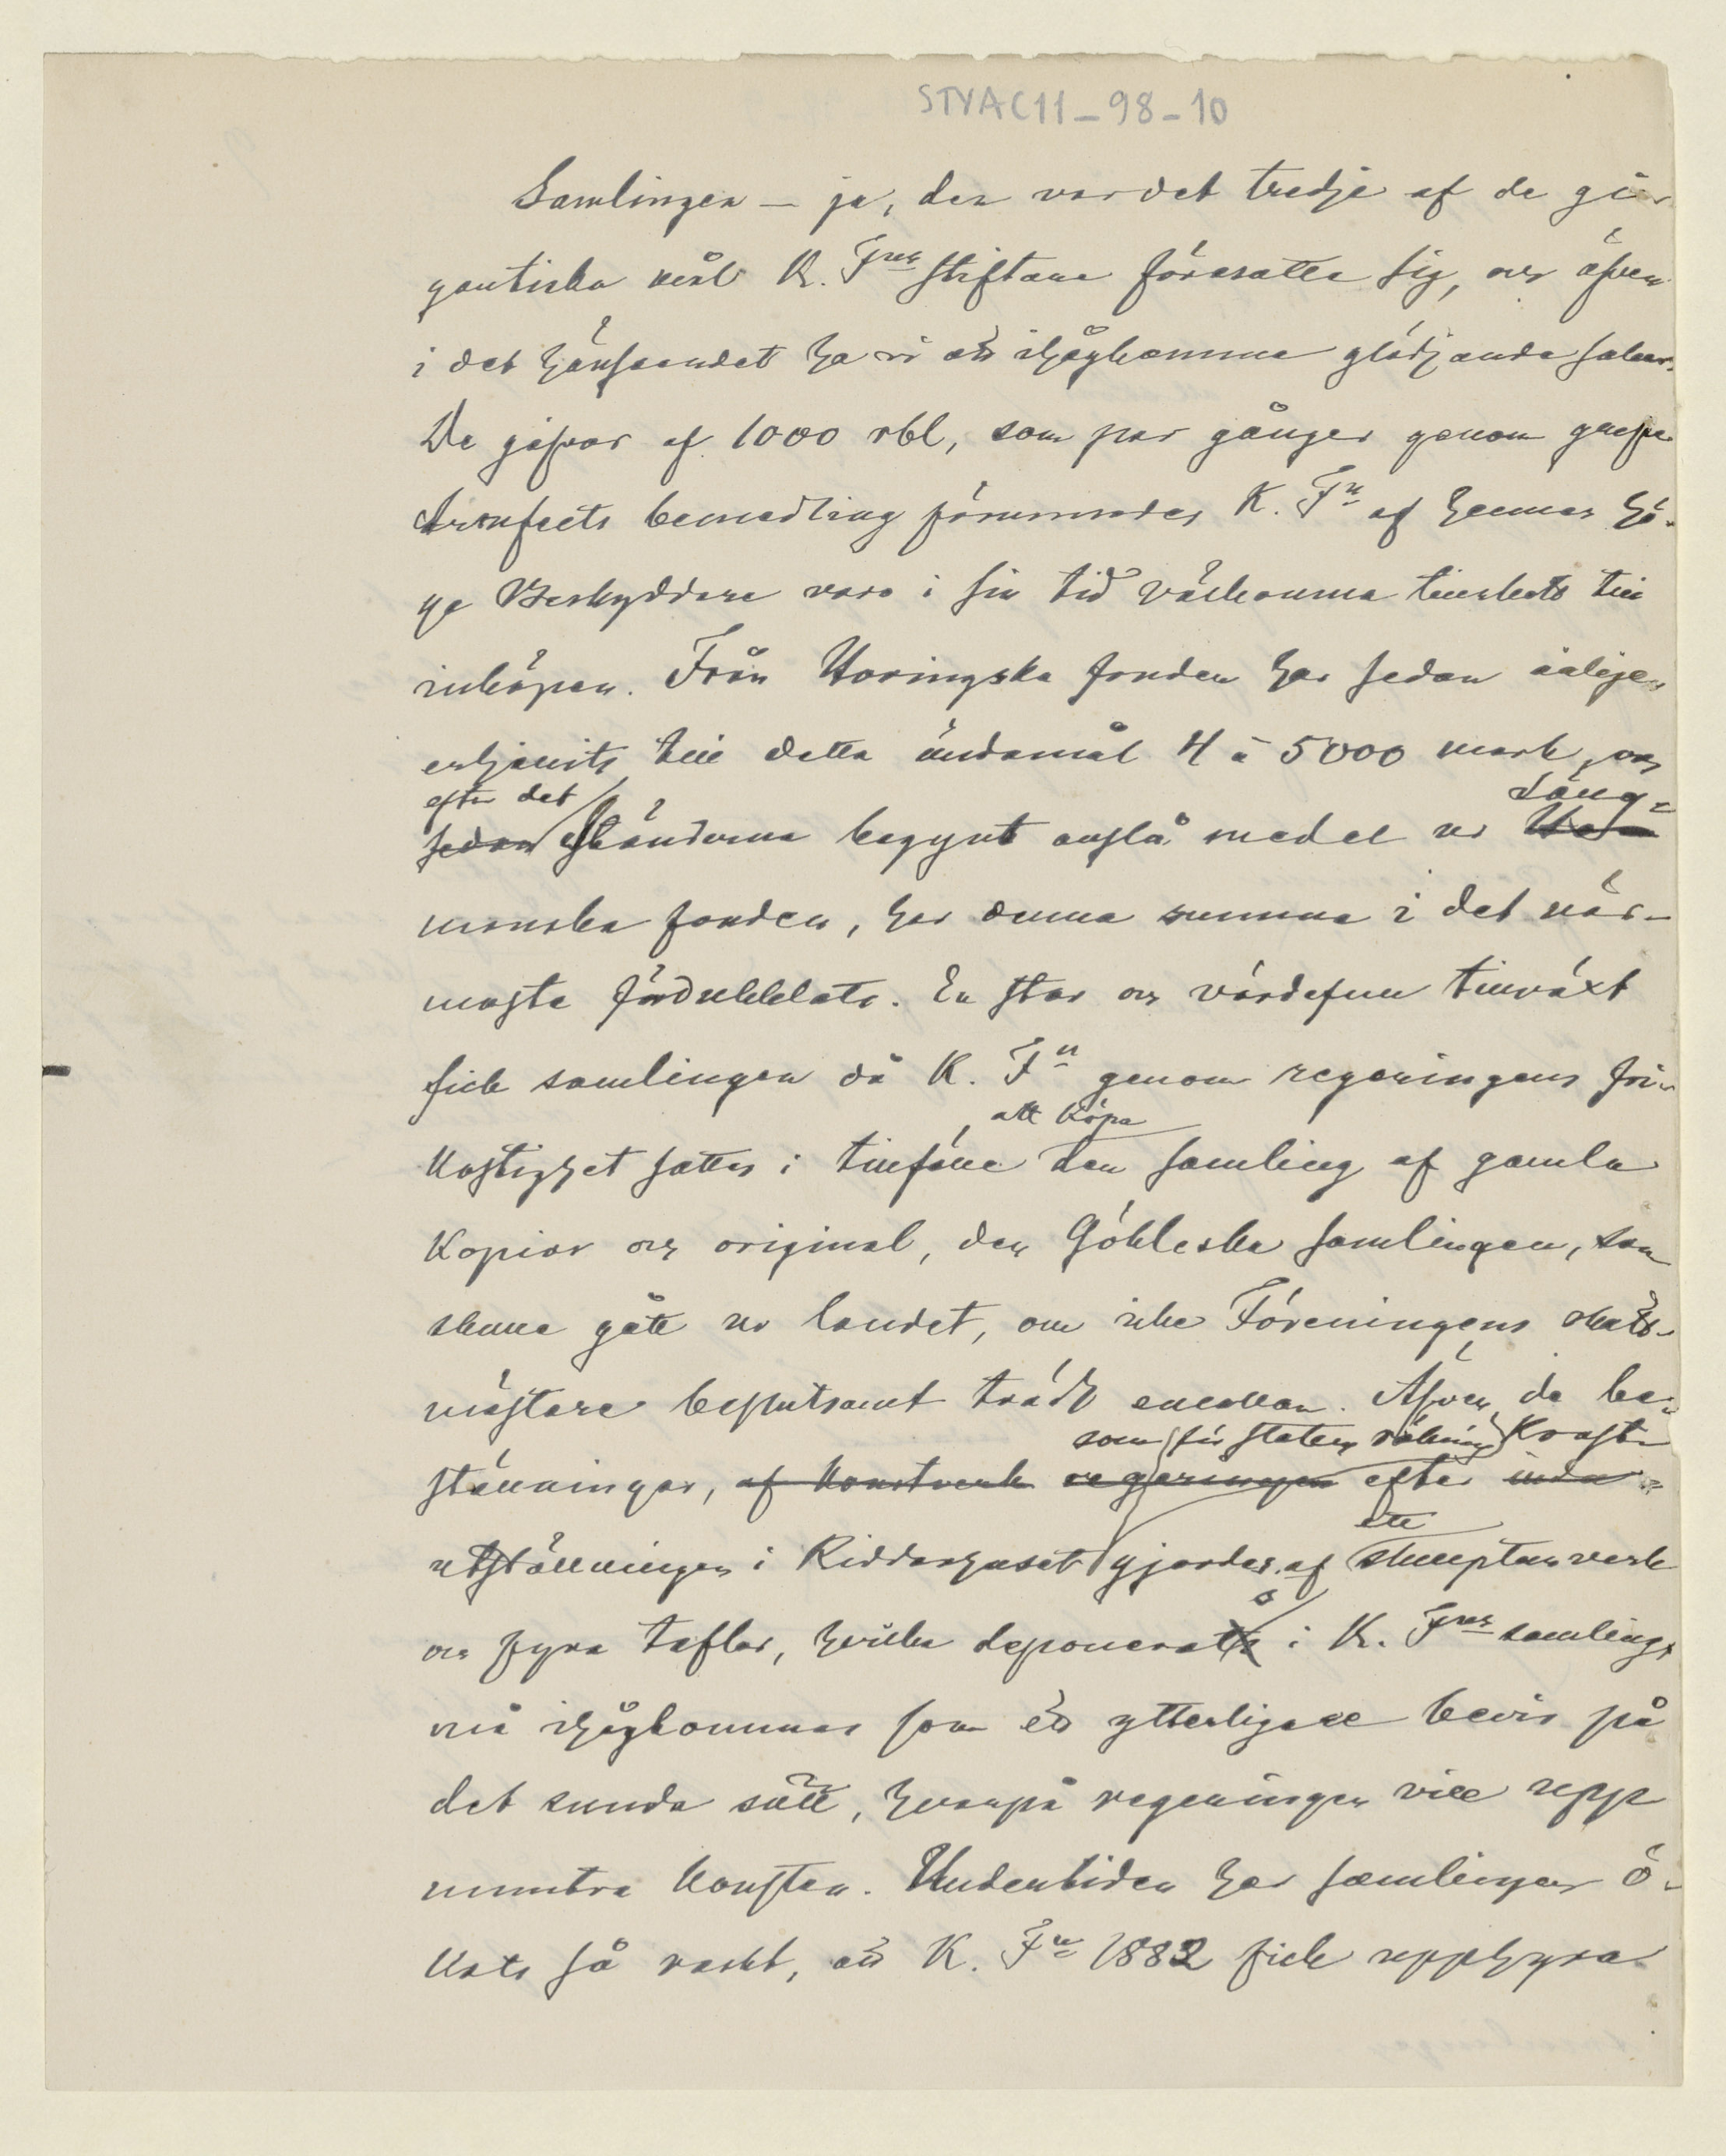 STYAC11_98-10
Samlingen — ja, den var det tredje af de gi-
gantiska mål K. Fngs stiftare föresatte sig, och äfven
i det hänseendet ha vi att ihågkomma glädjande saker.
De gåfvor af 1000 rbl, som par gånger genom grefve
Armfelts bemedling förunnades K. Fn af hennes hö-
ga Beskyddare voro i sin tid välkomna tillskott till
inköpen. Från Hovingska fonden har sedan årligen
erhållits till detta ändamål 4 à 5000 mark, och
efter det Läng-
sedan Ständerna begynt anslå medel ur
manska fonden, har denna summa i det när-
maste fördubblats. En stor och värdefull tillväxt
fick samlingen då K. Fn genom regeringens fri-
att köpa
kostighet sattes i tillfälle den samling af gamla
kopior och original, den Göhleska samlingen, som
skulle gått ur landet, om icke Föreningens skatt-
mästare beslutsamt trädt emellan. Äfven de be-
som för statens räkning Konst-
ställningar, af konstverk regeringen efter
utställningen i Riddarhuset gjordes af skulpturverk
ett
och fyra taflor, hvilka deponerats i K. Fngs samling,
må ihågkommas som ett ytterligare bevis på
det sunda sätt, hvarpå regeringen vill upp
muntra konsten. Undertiden har samlingen ö-
kats så raskt, att K. Fn 1882 fick upphyra